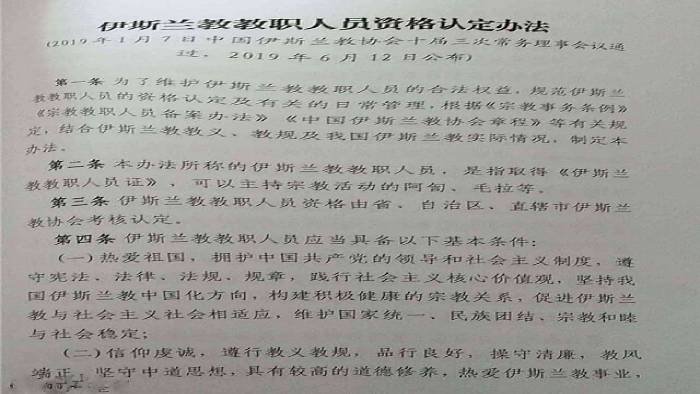 伊斯兰教教职人员资格认定办法
(2019年1月7日中国伊斯兰教协会十届三次常务理事会议通
过，2019年6月12日公布)
第一条 为了维护伊斯兰教教职人员的合法权益，规范伊斯兰
教教职人员的资格认定及有关的日常管理，根据《宗教事务条例》
《宗教教职人员备案办法》《中国伊斯兰教协会章程》等有关规
定，结合伊斯兰教教义、教规及我国伊斯兰教实际情况，制定本
办法。
第二条 本办法所称的伊斯兰教教职人员，是指取得《伊斯兰
教教职人员证》，可以主持宗教活动的阿訇、毛拉等。
第三条 伊斯兰教教职人员资格由省、自治区、直辖市伊斯兰
教协会考核认定。
第四条 伊斯兰教教职人员应当具备以下基本条件：
(一)热爱祖国，拥护中国共产党的领导和社会主义制度，遵
守宪法、法律、法规、规章，践行社会主义核心价值观，坚持我
国伊斯兰教中国化方向，构建积极健康的宗教关系，促进伊斯兰
教与社会主义社会相适应，维护国家统一、民族团结、宗教和睦
与社会稳定；
(二)信仰虔诚，遵行教义教规，品行良好，操守清廉，教风
端正，坚守中道思想，具有较高的道德修养，热爱伊斯兰教事业，